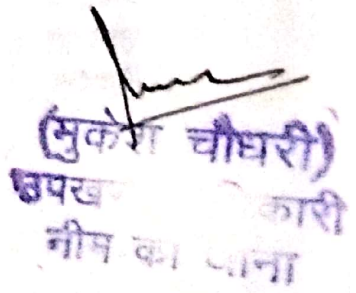 (मुकेश चौधरी)
उपख कारी
नीम का थाना